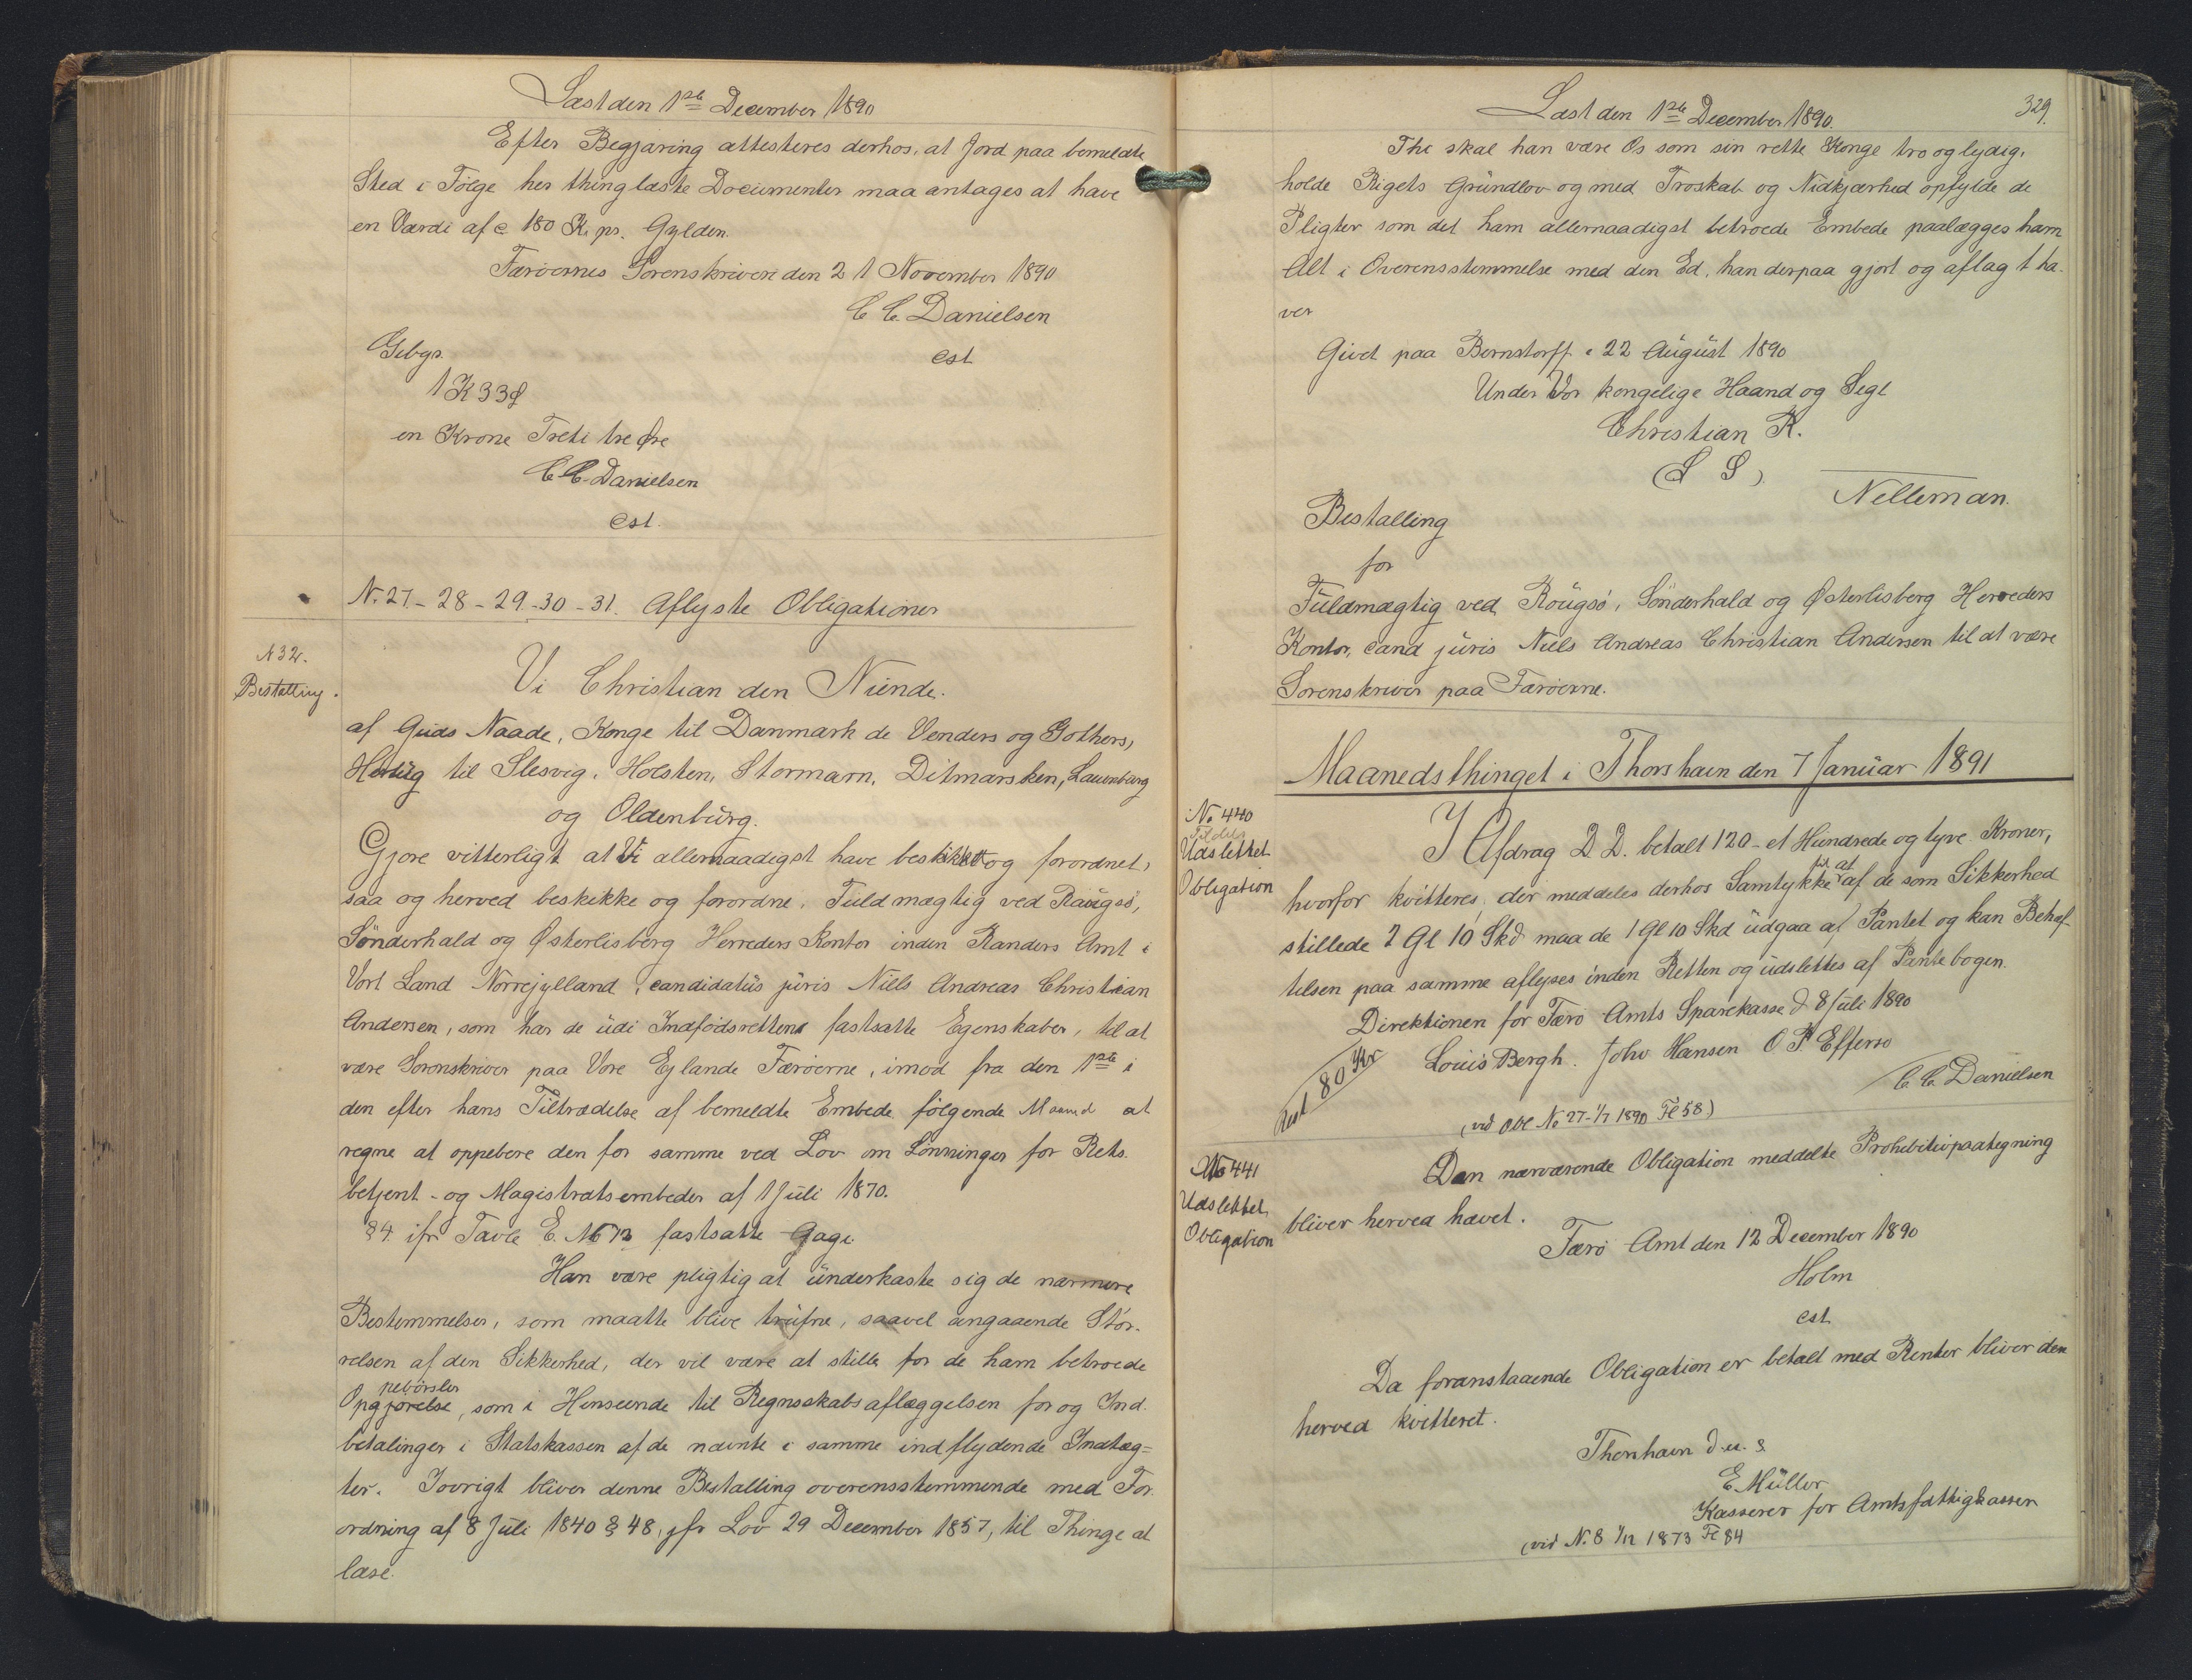 Læst den 1ste December 1890
Efter Begjæring attesteres derhos, at Jord paa bemeldte
Sted i Følge her thinglæste Documenter maa antages at have
en Værdi af c 180 K. pr. Gylden.
Færøernes Sorenskriveri den 21 November 1890
C C. Danielsen
cst
Gebyr.
1 K 33 Ø
en Krone Treti tre Øre
C. C. Danielsen
cst.
N. 27 - 28 - 29 - 30 - 31. Aflyste Obligationer
N 32.
Bestalling.
Vi Christian den Niende.
af Guds Naade, Konge til Danmark de Venders og Gothers,
Hertug til Slesvig, Holsten, Stormarn, Ditmarsken, Lauenburg
og Oldenburg.
Gjøre vitterligt at Vi allernaadigst have beskikket og forordnet,
saa og herved beskikke og forordne, Fuldmægtig ved Rougsø,
Sønderhald og Østerlisberg Herreders Kontor inden Randers Amt i
Vort Land Nørrejylland, candidatus juris Niels Andreas Christian
Andersen, som har de udi Indfødsretten fastsatte Egenskaber, til at
være Sorenskriver paa Vore Eylande Færøerne, imod fra den 1ste i
den efter hans Tiltrædelse af bemeldte Embede følgende Maaned at
regne at oppebere den for samme ved Lov om Lønninger for Rets-
betjent- og Magistratsembeder af 1 Juli 1870.
§ 4 ifr Tavle E. No 12 fastsatte Gage.
Han være pligtig at underkaste sig de nærmere
Bestemmelser, som maatte blive trufne, saavel angaaende Stør-
relsen af den Sikkerhed, der vil være at stille for de ham betroede
pebørsler
Opgjørelse, som i Henseende til Regnskabsaflæggelsen for og Ind-
betalinger i Statskassen af de nævnte i samme indflydende Indtæg=
ter. Iøvrigt bliver denne Bestalling overensstemmende med For-
ordning af 8 Juli 1840 § 48, jfr Lov 29 December 1857, til Thinge at
læse.
Læst den 1ste December 1890.
329.
Thi skal han være Os som sin rette Konge tro og lydig,
holde Rigets Grundlov og med Troskab og Nidkjærhed opfylde de
Pligter som det ham allernaadigst betroede Embede paalægges ham
Alt i Overensstemmelse med den Ed, han derpaa gjort og aflagt ha-
ver
Givet paa Bernstorff i 22 August 1890
Under Vor kongelige Haand og Segl
Christian R.
(L S)
Nelleman.
Bestalling
for
Fuldmægtig ved Rougsø, Sønderhald og Østerlisberg Herreders
Kontor, cand juris Niels Andreas Christian Andersen til at være
Sorenskriver paa Færøerne.
Maanedsthinget i Thorshavn den 7 Januar 1891
No 440
Tildels
Udslettet
Obligation
I Afdrag D. D. betalt 120 - et Hundrede og tyve Kroner,
hvorfor kvitteres, der meddeles derhos Samtykke til at af de som Sikkerhed
stillede 2 Gl 10 Skd maa de 1 Gl 10 Skd udgaa af Pantet og kan Behæf-
telsen paa samme aflyses inden Retten og udslettes af Pantebogen.
Direktionen for Færø Amts Sparekasse d 8 Juli 1890
Louis Bergh. John Hansen O P. Effersø
C. C. Danielsen
Rest 80 Kr
(vid Obl No 27 - 1/7 1890 Fl 58)
No 441
Udslettet
Obligation
Den nærværende Obligation meddelte Prohibitivpaategning
bliver herved hævet.
Færø Amt den 12 December 1890
Holm
cst
Da foranstaaende Obligation er betalt med Renter bliver den
herved kvitteret.
Thorshavn d. u. s
E. Müller
Kasserer for Amtsfattigkassen
(vid N. 8 1/12 1873 Fl 84